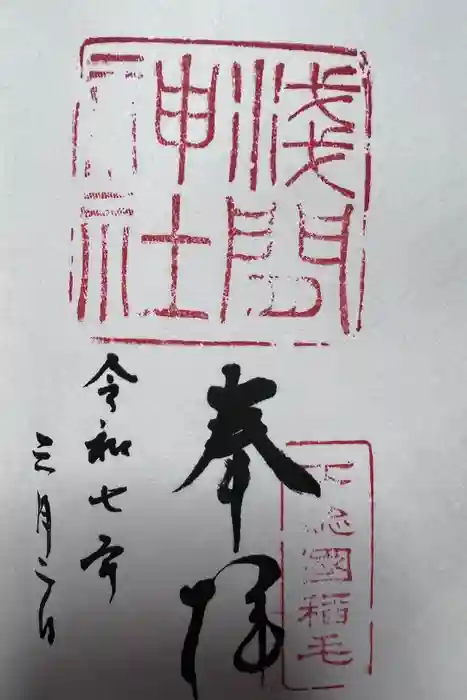 淺間
神社
奉拝
下総國稲毛
令和七年
三月二日